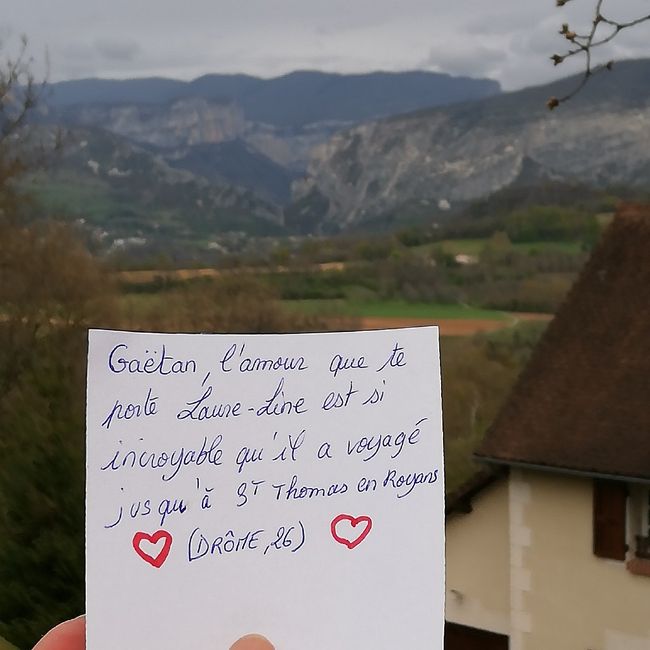 Gaëtan, l'amour que te
porte Laure-Line est si
incroyable qu'il a voyagé
jusqu'à St Thomas en Royans
(DRÔME, 26)